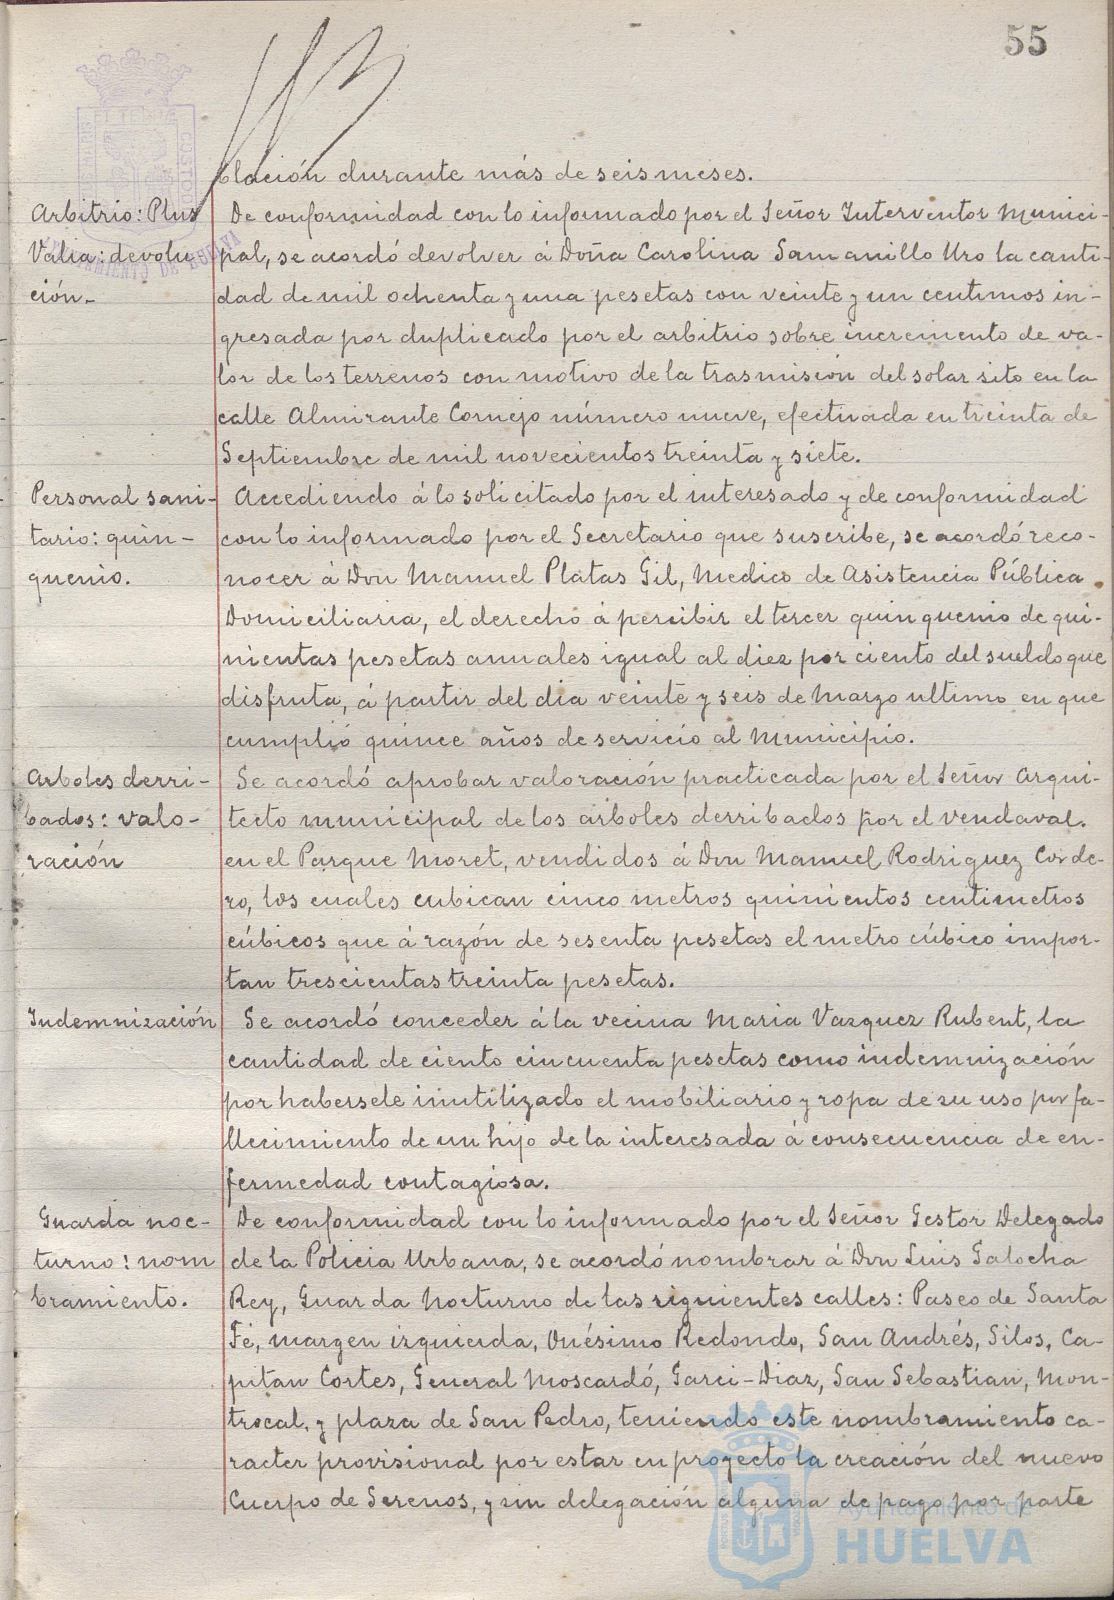 55
blación durante más de seis meses.
Arbitrio: Plus
Valia: devolu
ción.-
De conformidad con lo informado por el Señor Interventor Munici-
pal, se acordó devolver á Doña Carolina Samanillo Uro la canti-
dad de mil ochenta y una pesetas con veinte y un centimos in-
gresada por duplicado por el arbitrio sobre incremento de va-
lor de los terrenos con motivo de la trasmisión del solar sito en la
calle Almirante Cornejo número nueve, efectuada en treinta de
Septiembre de mil novecientos treinta y siete.
Personal sani-
tario: quin-
quenio.
Accediendo á lo solicitado por el interesado y de conformidad
con lo informado por el Secretario que suscribe, se acordó reco-
nocer á Don Manuel Platas Gil, Medico de Asistencia Pública
Domiciliaria, el derecho á percibir el tercer quinquenio de qui-
nientas pesetas anuales igual al diez por ciento del sueldo que
disfruta, á partir del dia veinte y seis de Marzo ultimo en que
cumplió quince años de servicio al Municipio.
Arboles derri-
bados: valo-
ración
Se acordó aprobar valoración practicada por el Señor Arqui-
tecto municipal de los árboles derribados por el vendaval.
en el Parque Moret, vendidos á Don Manuel Rodriguez Corde-
ro, los cuales cubican cinco metros quinientos centimetros
cúbicos que á razón de sesenta pesetas el metro cúbico impor-
tan trescientas treinta pesetas.
Indemnización
Se acordó conceder á la vecina Maria Vazquez Rubent, la
cantidad de ciento cincuenta pesetas como indemnización
por habersele inutilizado el mobiliario y ropa de su uso por fa-
llecimiento de un hijo de la interesada á consecuencia de en-
fermedad contagiosa.
Guarda noc-
turno: nom
bramiento.
De conformidad con lo informado por el Señor Gestor Delegado
de la Policia Urbana, se acordó nombrar á Don Luis Galocha
Rey, Guarda Nocturno de las siguientes calles: Paseo de Santa
Fé, margen izquierda, Onésimo Redondo, San Andrés, Silos, Ca-
pitan Cortes, General Moscardó, Garci-Diaz, San Sebastian, Mon-
trocal, y plaza de San Pedro, teniendo este nombramiento ca-
racter provisional por estar en proyecto la creación del nuevo
Cuerpo de Serenos, y sin delegación alguna de pago por parte
Ayuntamiento de
HUELVA